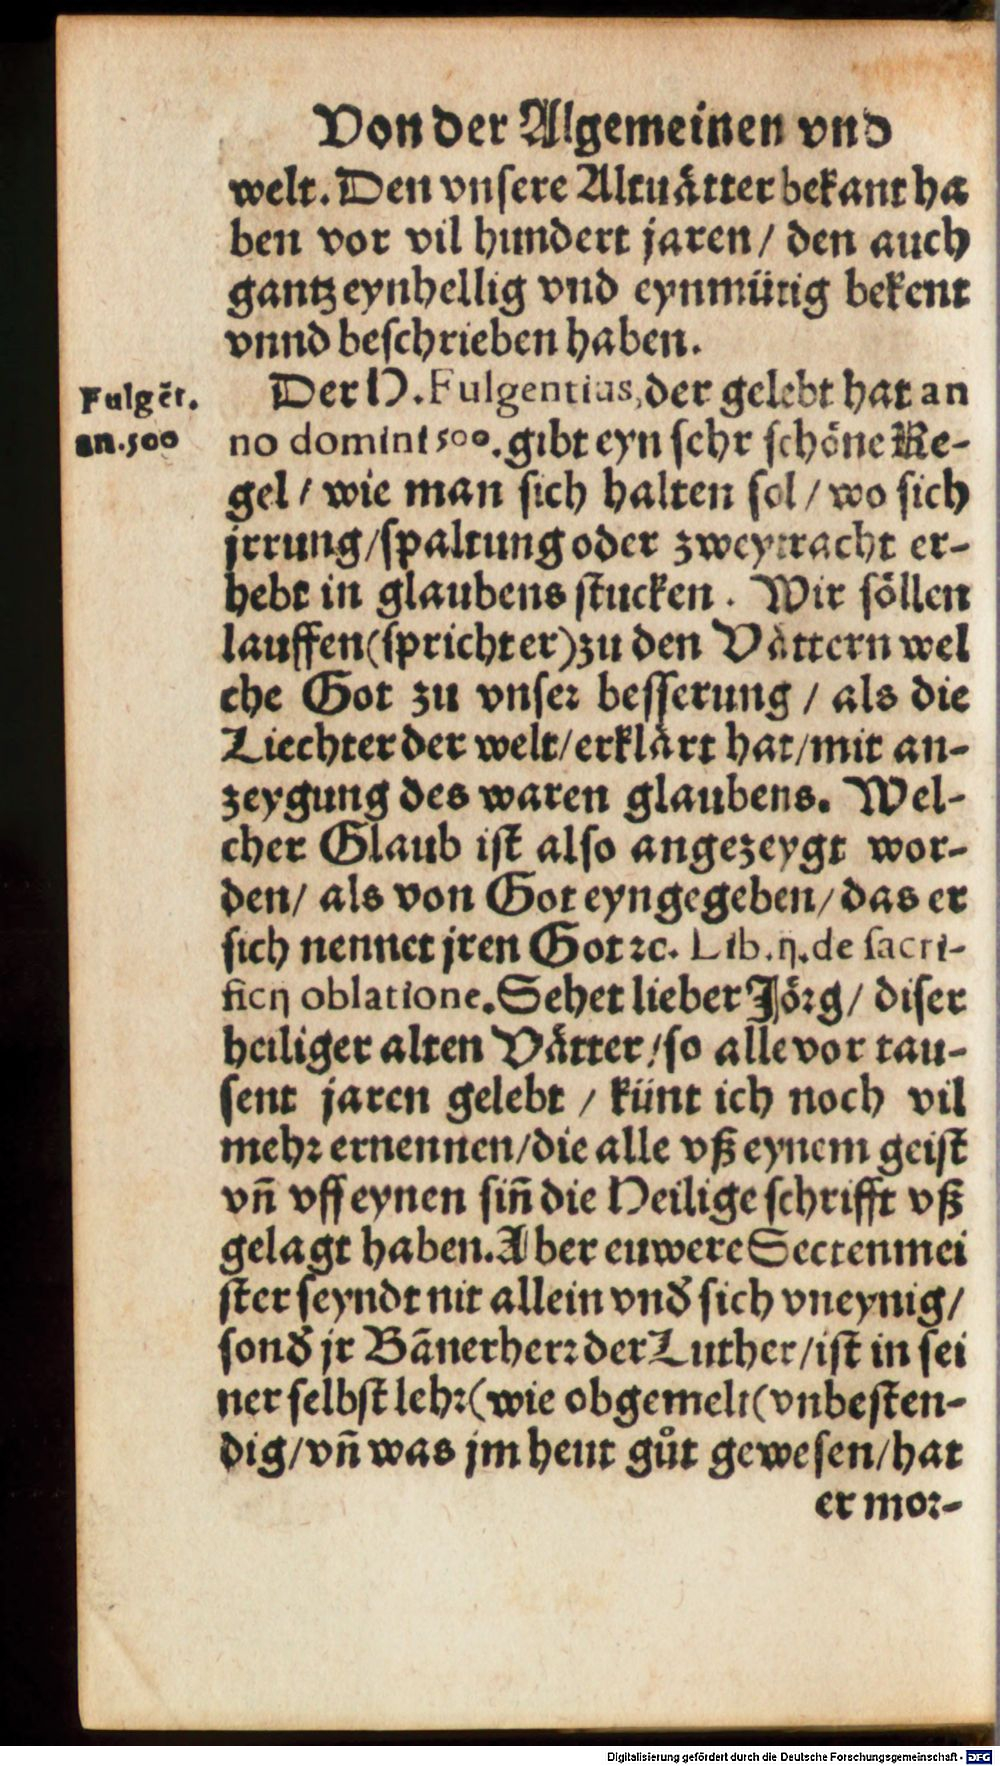 Von der Algemeinen vnd
welt. Den vnsere Altuätter bekant ha
ben vor vil hundert jaren / den auch
gantz eynhellig vnd eynmütig bekent
vnnd beschrieben haben.
Fulgẽt.
an. 500
Der H. Fulgentius, der gelebt hat an
no domini 500. gibt eyn sehr schöne Re-
gel / wie man sich halten sol / wo sich
jrrung / spaltung oder zweytracht er-
hebt in glaubens stucken. Wir söllen
lauffen (spricht er) zu den Vättern wel
che Got zu vnser besserung / als die
Liechter der welt / erklärt hat / mit an-
zeygung des waren glaubens. Wel-
cher Glaub ist also angezeygt wor-
den / als von Got eyngegeben / das er
sich nennet jren Got ꝛc. Lib. ij. de sacri-
ficij oblatione. Sehet lieber Jörg / diser
heiliger alten Vätter / so alle vor tau-
sent jaren gelebt / künt ich noch vil
mehr ernennen / die alle vß eynem geist
vñ vff eynen siñ die Heilige schrifft vß
gelagt haben. Aber euwere Sectenmei
ster seyndt nit allein vnd̕ sich vneynig /
sond̕ jr Bãnerherr der Luther / ist in sei
ner selbst lehr (wie obgemelt( vnbesten-
dig / vñ was jm heut gůt gewesen / hat
er mor-
Digitalisierung gefördert durch die Deutsche Forschungsgemeinschaft - DFG